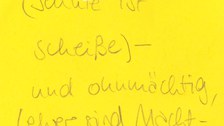 (Schule ist
scheiße)—
und ohnmächtig,
(Lehrer sind Macht-